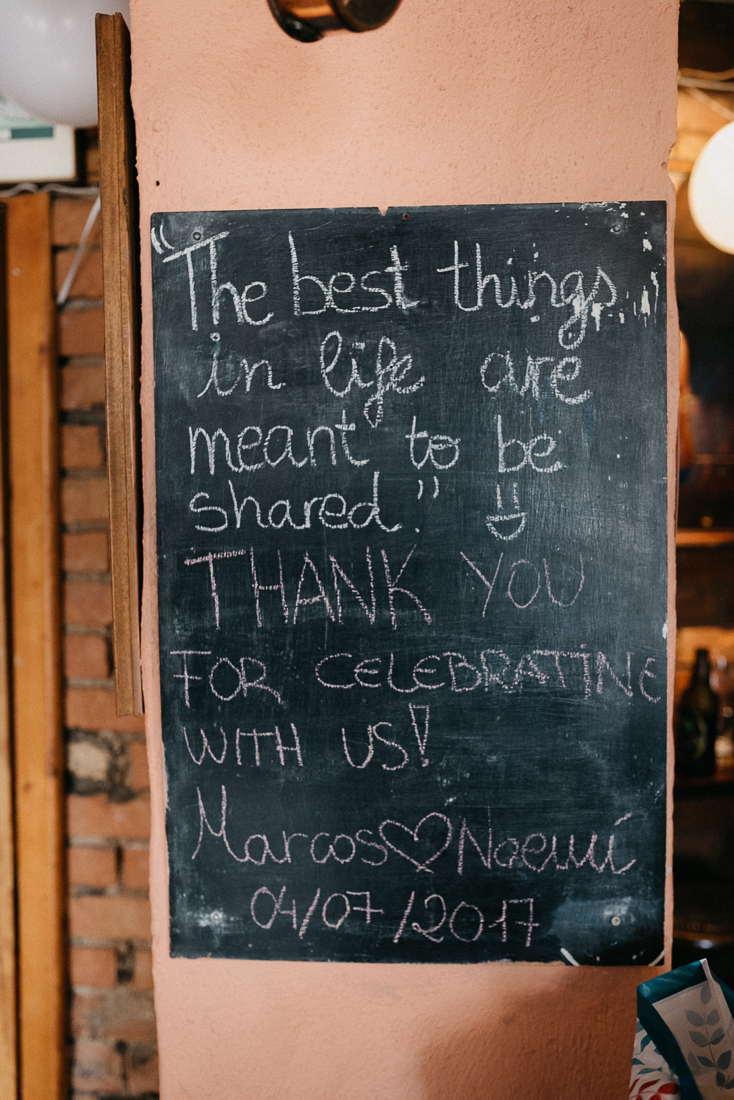 "The best things
in life are
meant to be
shared."
THANK YOU
FOR CELEBRATINE
WITH US!
Marcos♡Noemí
04/07/2017